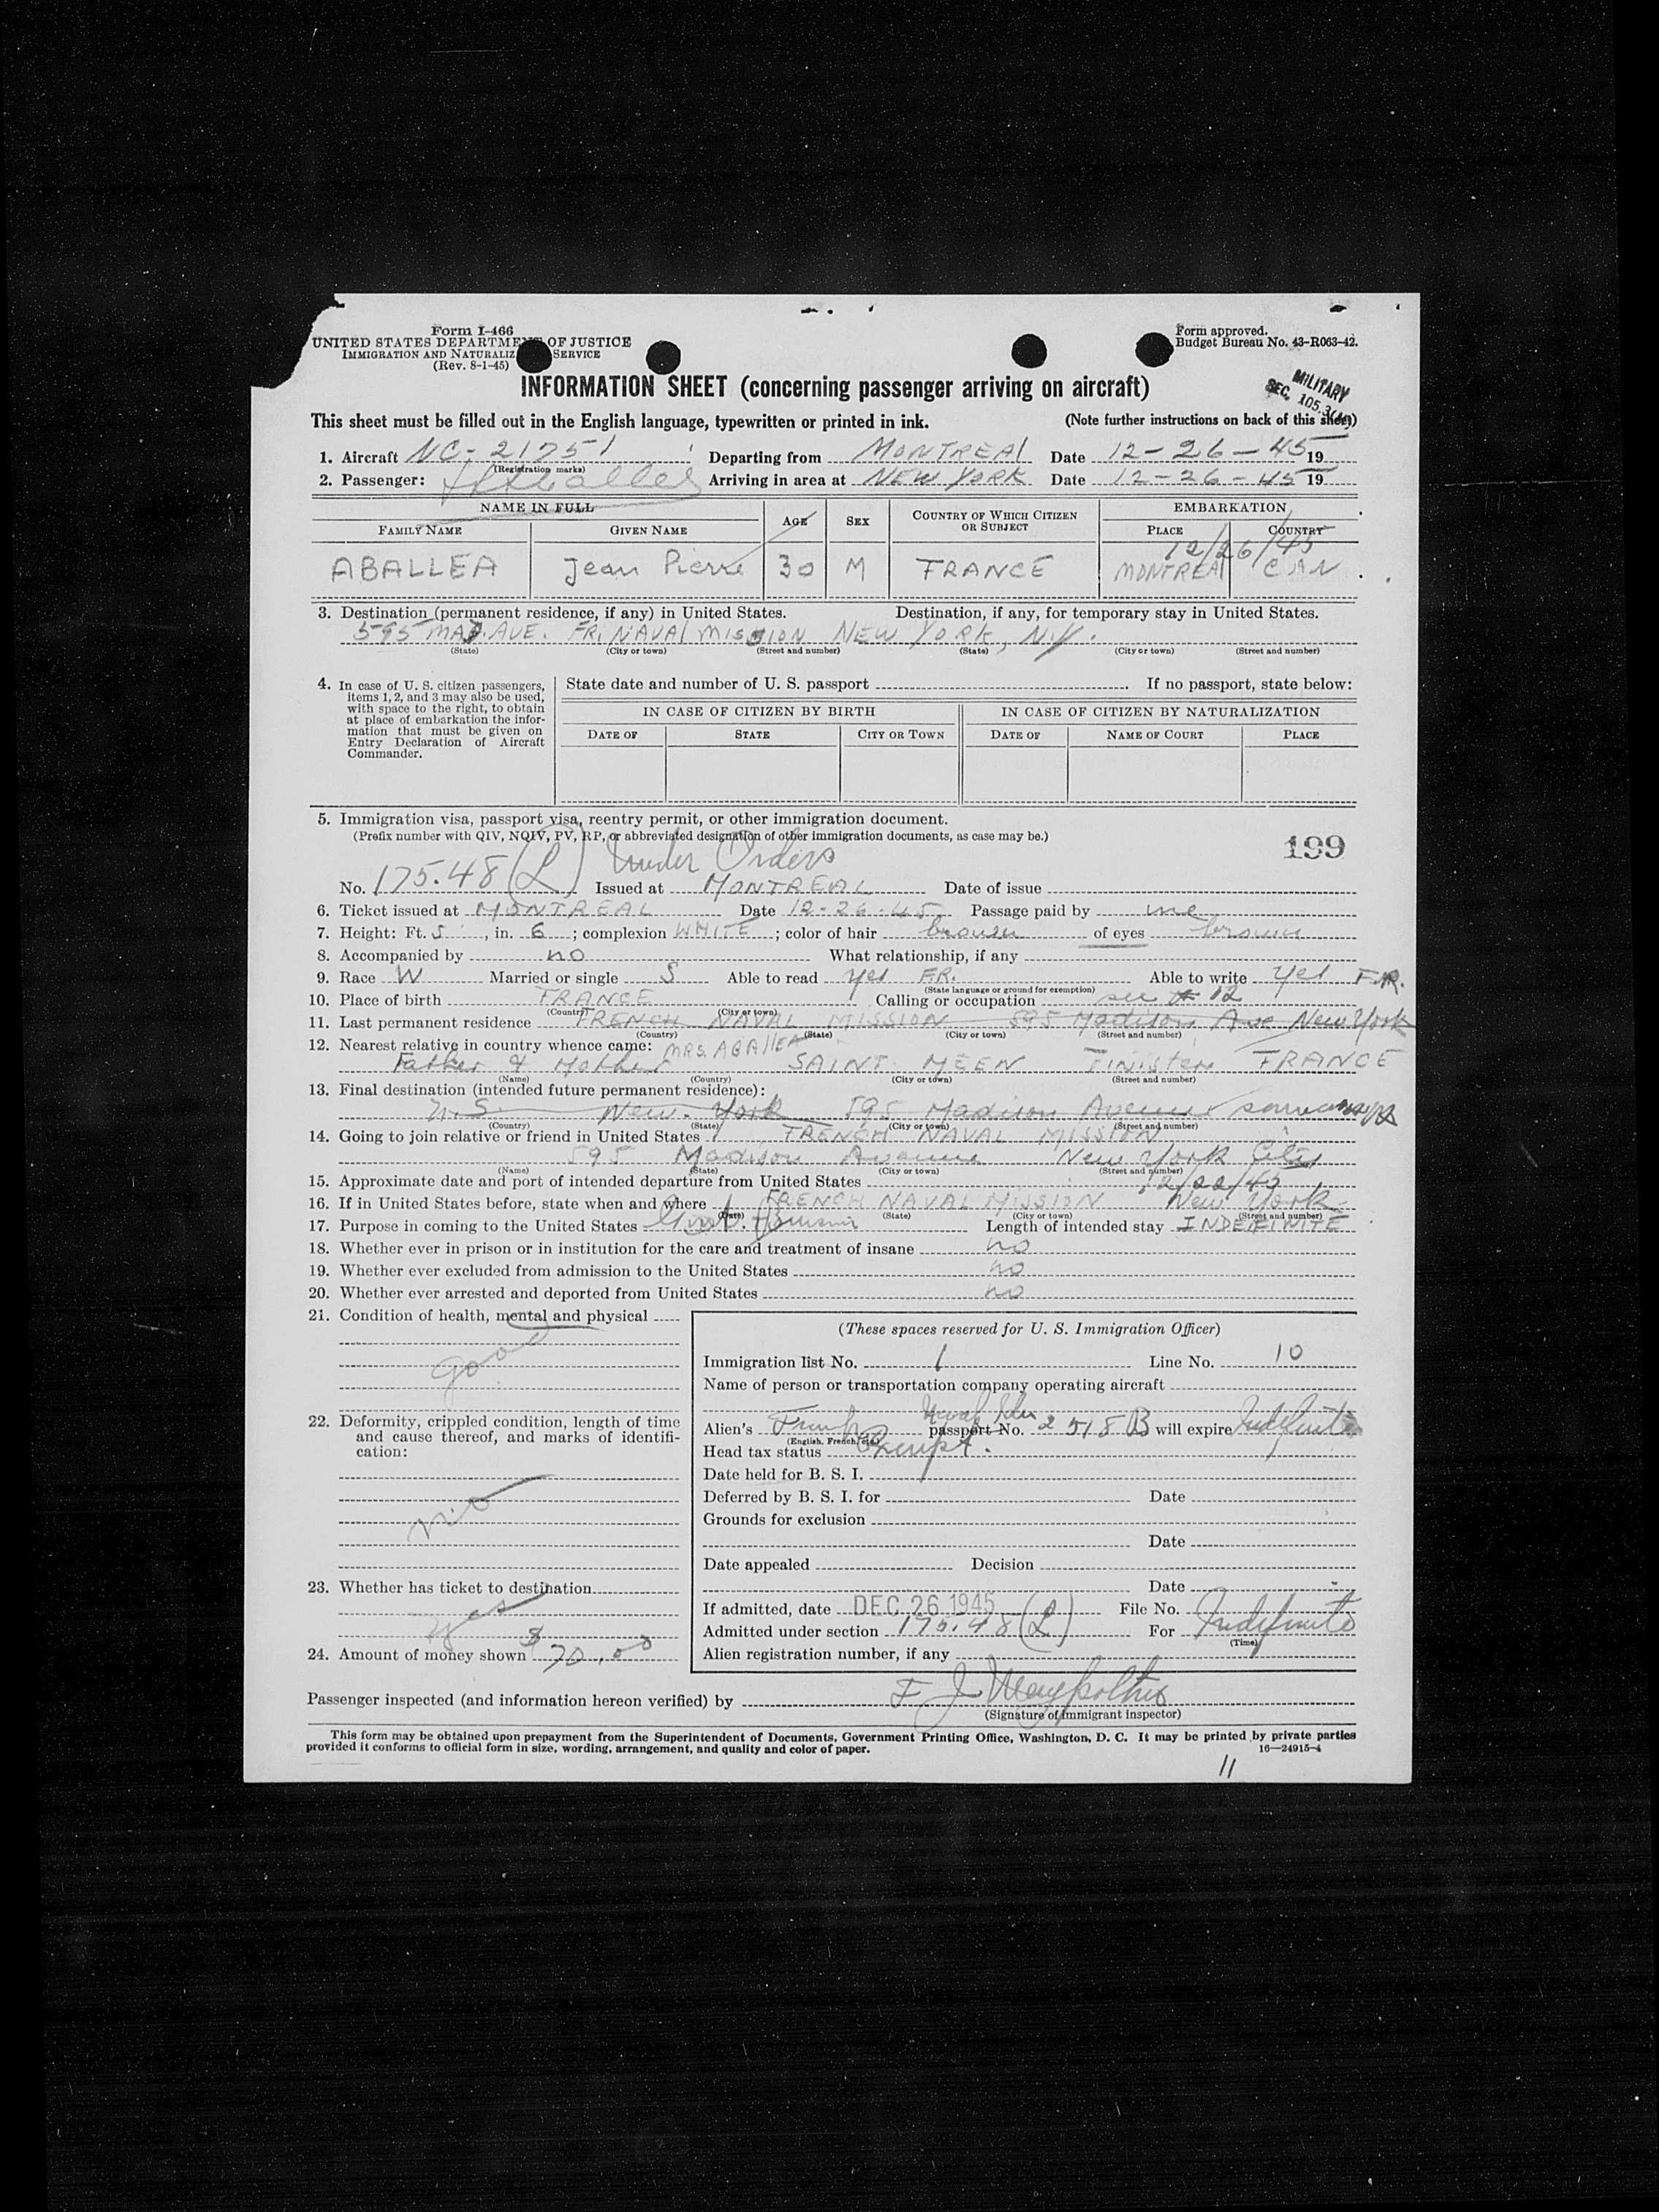 Form I-466
UNITED STATES DEPARTMENT OF JUSTICE
IMMIGRATION AND NATURALIZ SERVICE
(Rev. 8-1-45)
Form approved.
Budget Bureau No. 43-R063-42.
INFORMATION SHEET (concerning passenger arriving on aircraft)
MILITARY
SEC. 105.3
This sheet must be filled out in the English language, typewritten or printed in ink. (Note further instructions on back of this sheet)
1. Aircraft NC-21751 Departing from MONTREAL Date 12-26-45 19
(Registration marks)
2. Passenger: Aballea Arriving in area at NEW YORK Date 12-26-45 19
NAME IN FULL AGE SEX COUNTRY OF WHICH CITIZEN OR SUBJECT EMBARKATION
FAMILY NAME GIVEN NAME PLACE COUNTRY
12/26/45
ABALLEA Jean Pierre 30 M FRANCE MONTREAL CAN
3. Destination (permanent residence, if any) in United States. Destination, if any, for temporary stay in United States.
595 MAD. AVE. FR. NAVAL MISSION NEW YORK, N.Y.
(State) (City or town) (Street and number) (State) (City or town) (Street and number)
4. In case of U. S. citizen passengers, items 1, 2, and 3 may also be used, with space to the right, to obtain at place of embarkation the information that must be given on Entry Declaration of Aircraft Commander.
State date and number of U. S. passport If no passport, state below:
IN CASE OF CITIZEN BY BIRTH IN CASE OF CITIZEN BY NATURALIZATION
DATE OF STATE CITY OR TOWN DATE OF NAME OF COURT PLACE
5. Immigration visa, passport visa, reentry permit, or other immigration document.
(Prefix number with QIV, NQIV, PV, RP, or abbreviated designation of other immigration documents, as case may be.)
199
Under Orders
No. 175.48 (L) Issued at MONTREAL Date of issue
6. Ticket issued at MONTREAL Date 12-26-45 Passage paid by me
7. Height: Ft. 5, in. 6; complexion WHITE; color of hair brown of eyes brown
8. Accompanied by no What relationship, if any
9. Race W Married or single S Able to read yes FR. Able to write yes FR.
(State language or ground for exemption)
10. Place of birth FRANCE Calling or occupation see # 12
(Country) (City or town)
11. Last permanent residence FRENCH NAVAL MISSION 595 Madison Ave New York
(Country) (State) (City or town) (Street and number)
12. Nearest relative in country whence came: MRS. ABALLEA
Father & Mother SAINT MEEN Finister FRANCE
(Name) (Country) (City or town) (Street and number)
13. Final destination (intended future permanent residence):
U.S. New York 595 Madison Avenue
(Country) (State) (City or town) (Street and number)
14. Going to join relative or friend in United States FRENCH NAVAL MISSION
595 Madison Avenue New York City
(Name) (State) (City or town) (Street and number)
15. Approximate date and port of intended departure from United States
16. If in United States before, state when and where 12/22/45 FRENCH NAVAL MISSION New York
(Date) (State) (City or town) (Street and number)
17. Purpose in coming to the United States Length of intended stay INDEFINITE
18. Whether ever in prison or in institution for the care and treatment of insane no
19. Whether ever excluded from admission to the United States no
20. Whether ever arrested and deported from United States no
21. Condition of health, mental and physical
good
22. Deformity, crippled condition, length of time and cause thereof, and marks of identification:
no
23. Whether has ticket to destination
yes
24. Amount of money shown $70.00
(These spaces reserved for U. S. Immigration Officer)
Immigration list No. 1 Line No. 10
Name of person or transportation company operating aircraft
Naval Iden
Alien's French passport No. 2518B will expire Indefinite
(English, French, etc.)
Head tax status Exempt.
Date held for B. S. I.
Deferred by B. S. I. for Date
Grounds for exclusion
Date
Date appealed Decision
Date
If admitted, date DEC 26 1945 File No.
Admitted under section 175.48 (L) For Indefinite
(Time)
Alien registration number, if any
Passenger inspected (and information hereon verified) by F J
(Signature of immigrant inspector)
This form may be obtained upon prepayment from the Superintendent of Documents, Government Printing Office, Washington, D. C. It may be printed by private parties
provided it conforms to official form in size, wording, arrangement, and quality and color of paper. 16—24915-4
11